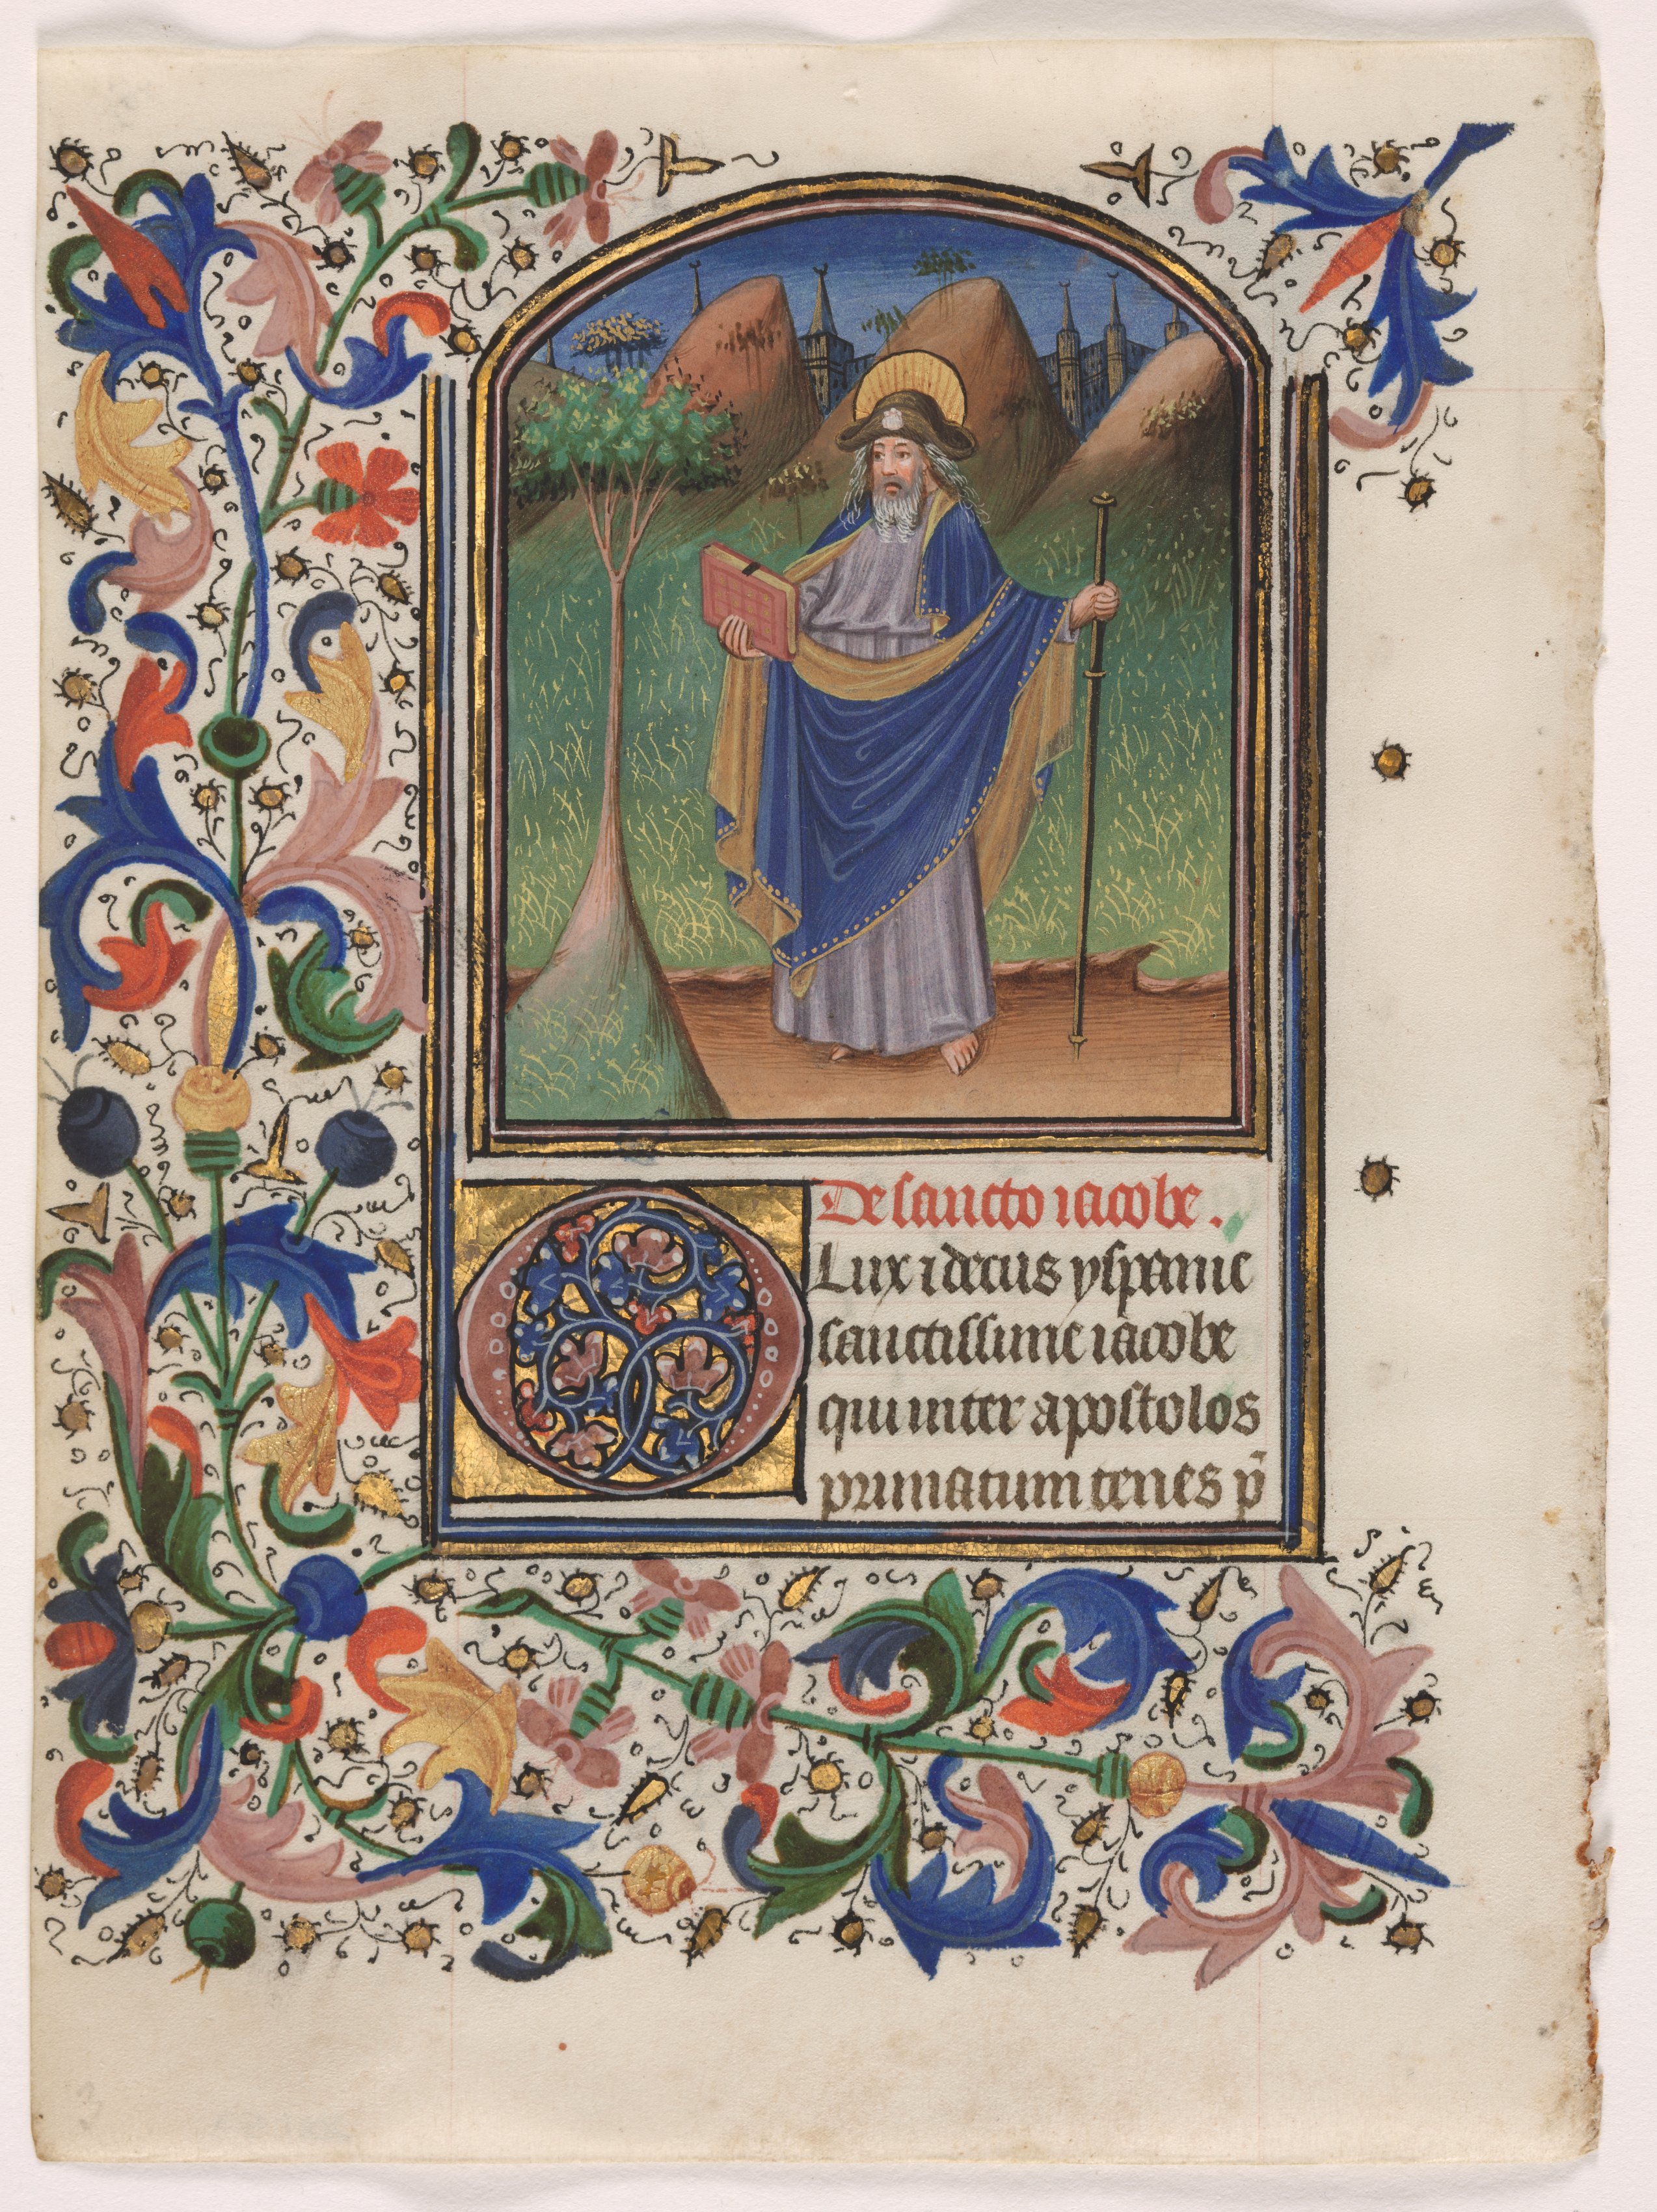 De sancto iacobe.
O Lux i decus yspanie
sanctissime iacobe
qui inter apostolos
primatum tenes p̄